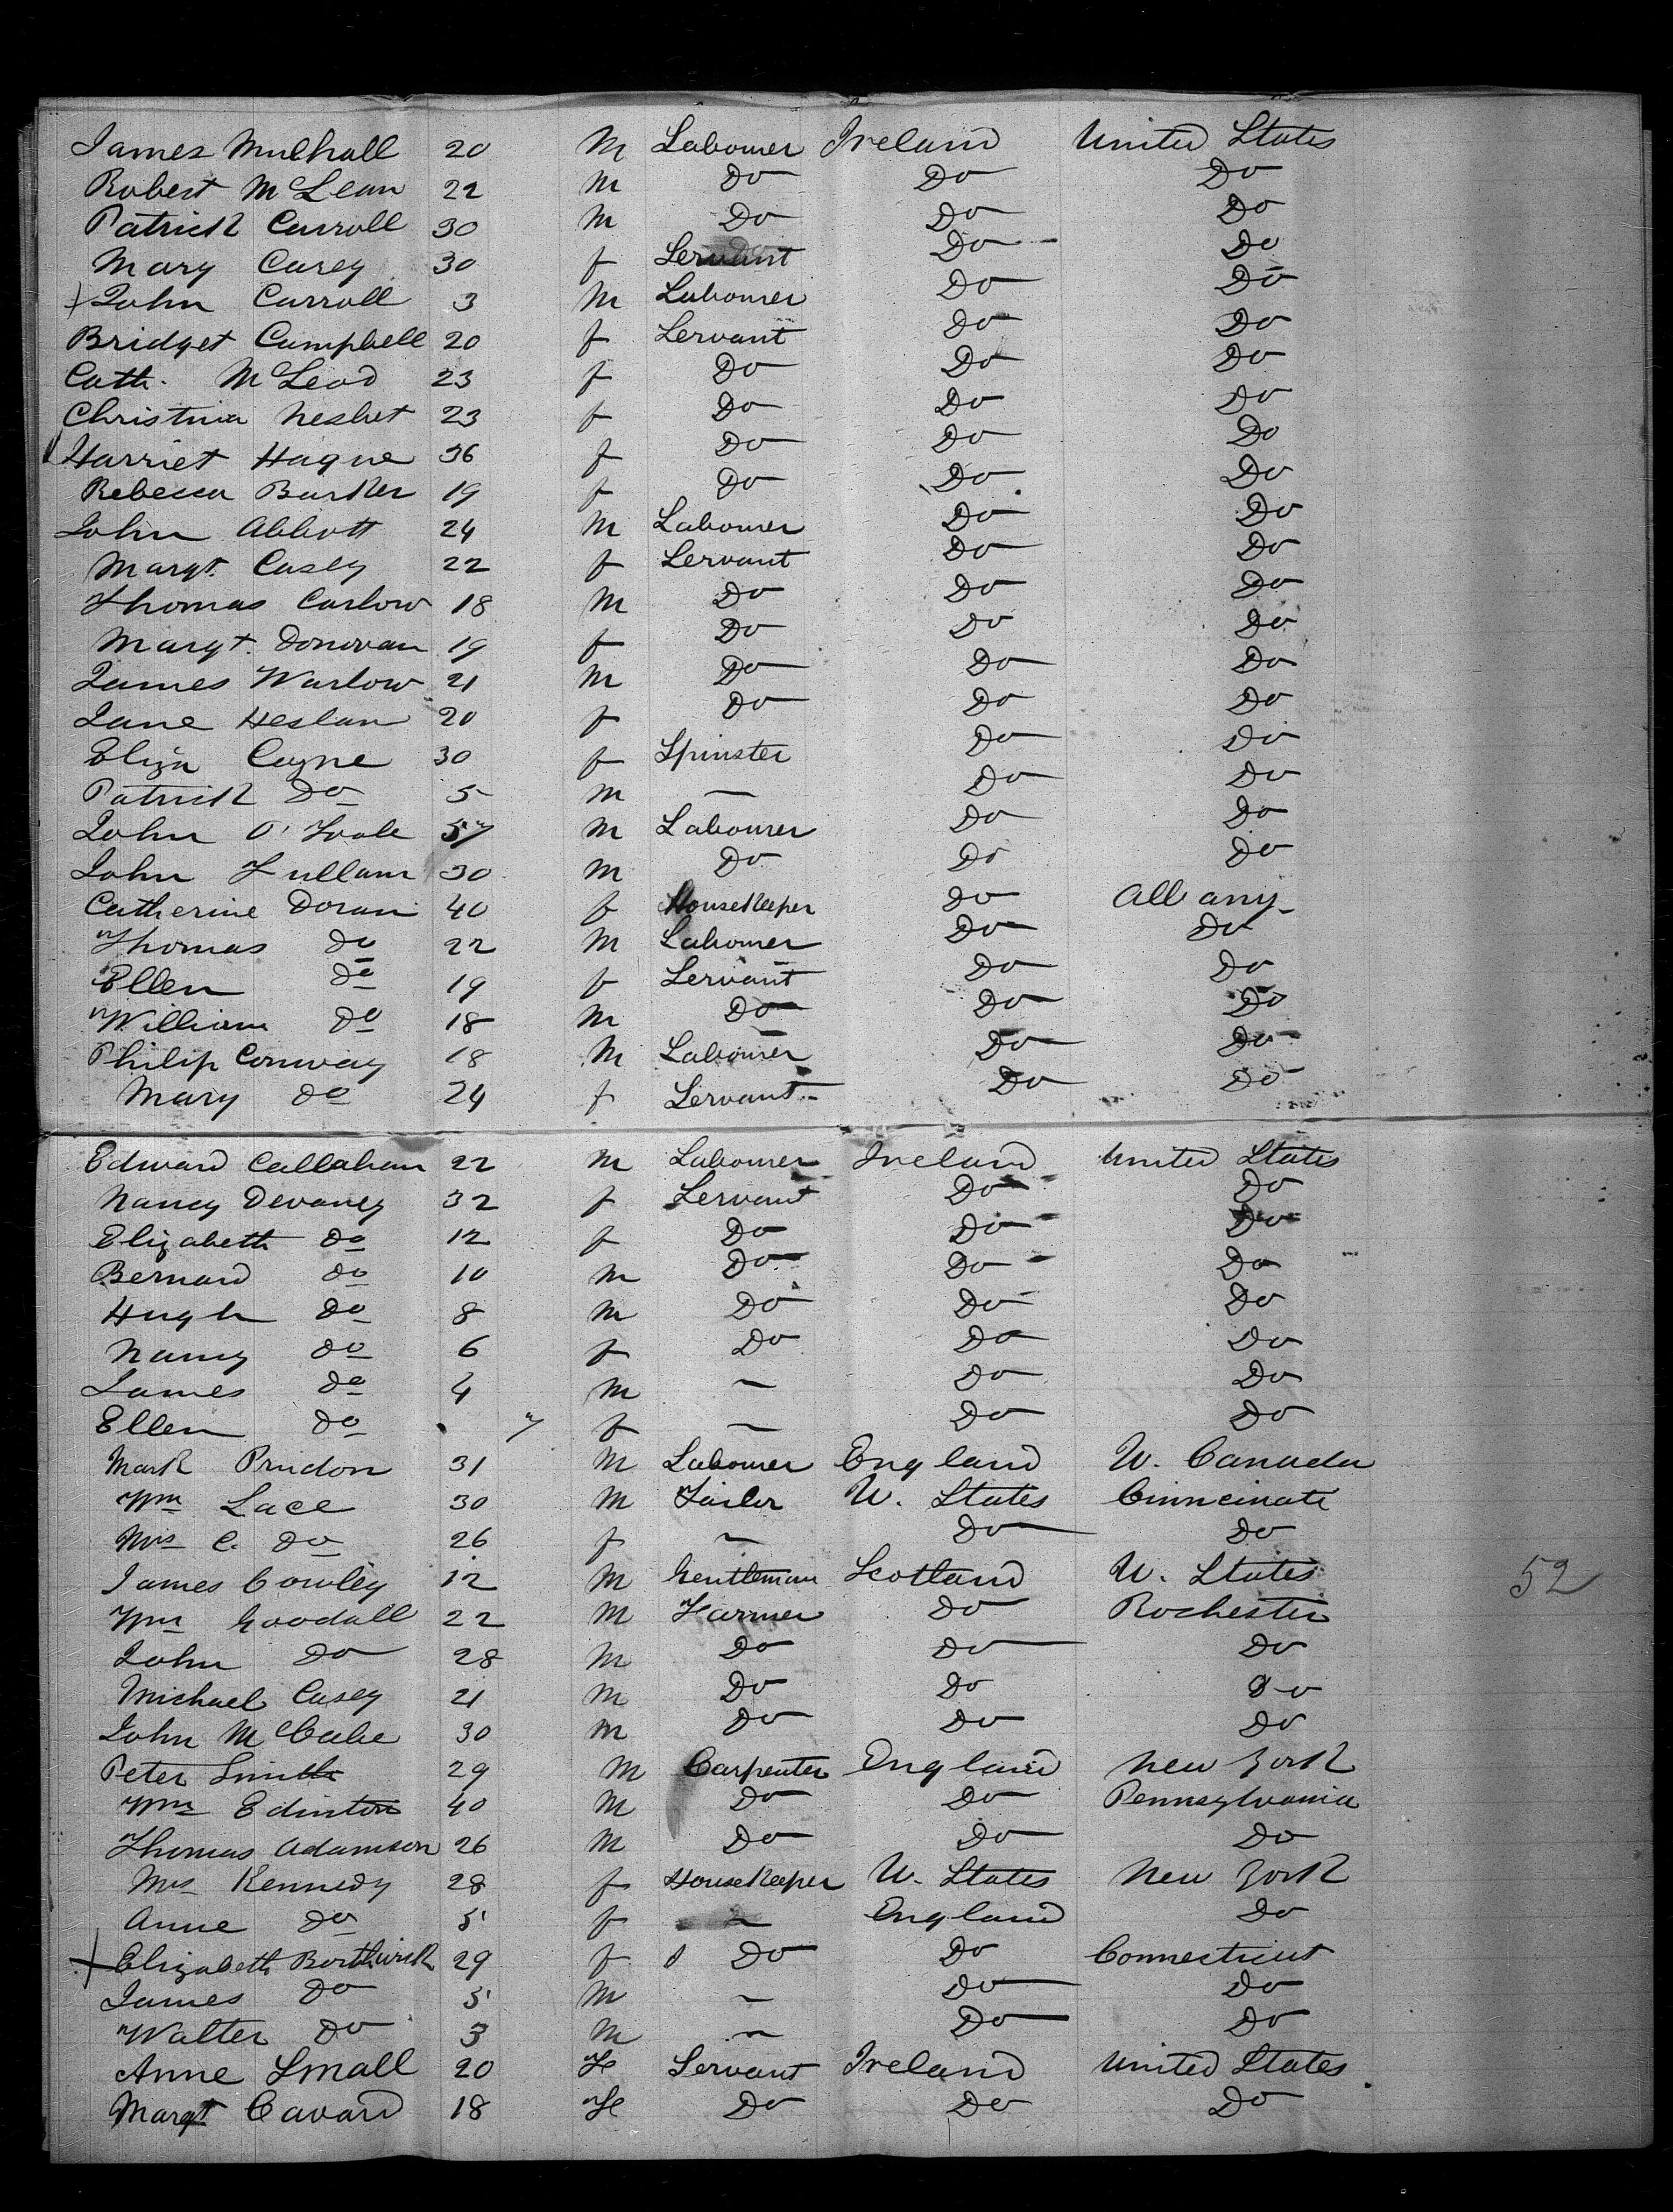 James Mulhall 20 M Labourer Ireland United States
Robert McLean 22 M Do Do Do
Patrick Carroll 30 M Do Do Do
Mary Carey 30 f Servant Do Do
+ John Carroll 3 M Labourer Do Do
Bridget Campbell 20 f Servant Do Do
Cath. McLeod 23 f Do Do Do
Christina Nesbet 23 f Do Do Do
Harriet Hague 36 f Do Do Do
Rebecca Barker 19 f Do Do Do
John Abbott 24 M Labourer Do Do
Margt. Casey 22 f Servant Do Do
Thomas Carlow 18 M Do Do Do
Margt. Donovan 19 f Do Do Do
James Warlow 21 M Do Do Do
Jane Heslan 20 f Do Do Do
Eliza Coyne 30 f Spinster Do Do
Patrick Do 5 M — Do Do
John O'Toole 57 M Labourer Do Do
John Fullam 30 M Do Do Do
Catherine Doran 40 f HouseKeeper Do Albany
Thomas do 22 M Labourer Do Do
Ellen do 19 f Servant Do Do
William do 18 M Do Do Do
Philip Conway 18 M Labourer Do Do
Mary do 24 f Servant Do Do
Edward Callahan 22 M Labourer Ireland United States
Nancy Devaney 32 f Servant Do Do
Elizabeth do 12 f Do Do Do
Bernard do 10 M Do Do Do
Hugh do 8 M Do Do Do
Nancy do 6 f Do Do Do
James do 4 M ~ Do Do
Ellen do 7 f ~ Do Do
Mark Prudon 31 M Labourer England W. Canada
Wm Lace 30 M Tailor U. States Cinncinate
Mrs C. Do 26 f ~ Do Do
James Cowley 12 M Gentleman Scotland U. States
Wm Goodall 22 M Farmer Do Rochester 52
John Do 28 M Do Do Do
Michael Casey 21 M Do Do Do
John McCabe 30 M Do Do Do
Peter Smith 29 M Carpenter England New York
Wm Edinton 40 M Do Do Pennsylvania
Thomas Adamson 26 M Do Do Do
Mrs Kennedy 28 f HouseKeeper U. States New York
Anne Do 5 f ~ England Do
+ Elizabeth Borthwick 29 f Do Do Connecticut
James Do 5 M ~ Do Do
Walter Do 3 M ~ Do Do
Anne Small 20 Fe Servant Ireland United States
Margt Cavard 18 Fe Do Do Do